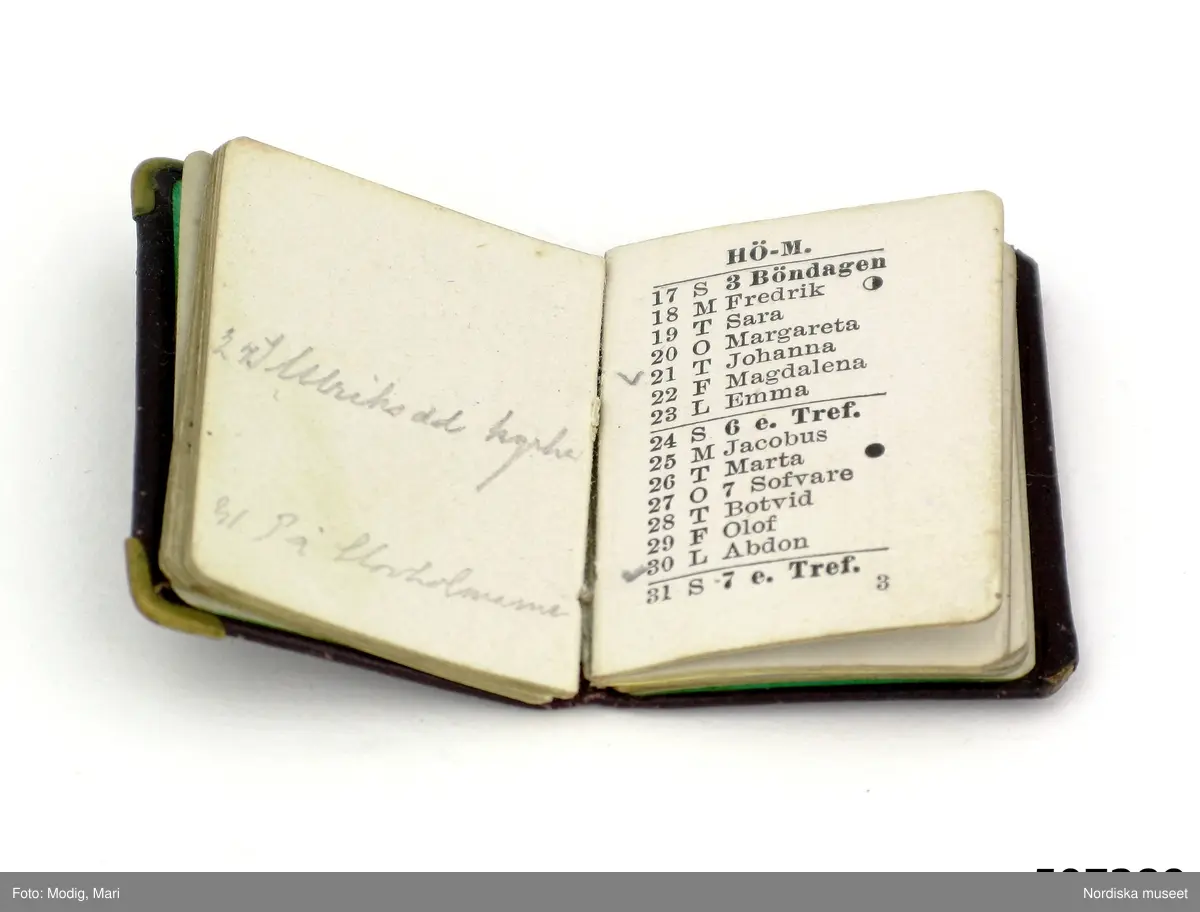 Ulriksdals kyrka
31 På
HÖ-M.
17 S 3 Böndagen
18 M Fredrik
19 T Sara
20 O Margareta
21 T Johanna
22 F Magdalena
23 L Emma
24 S 6 e. Tref.
25 M Jacobus
26 T Marta
27 O 7 Sofvare
28 T Botvid
29 F Olof
30 L Abdon
31 S 7 e. Tref.
3
Foto: Modig, Mari
Nordiska museet